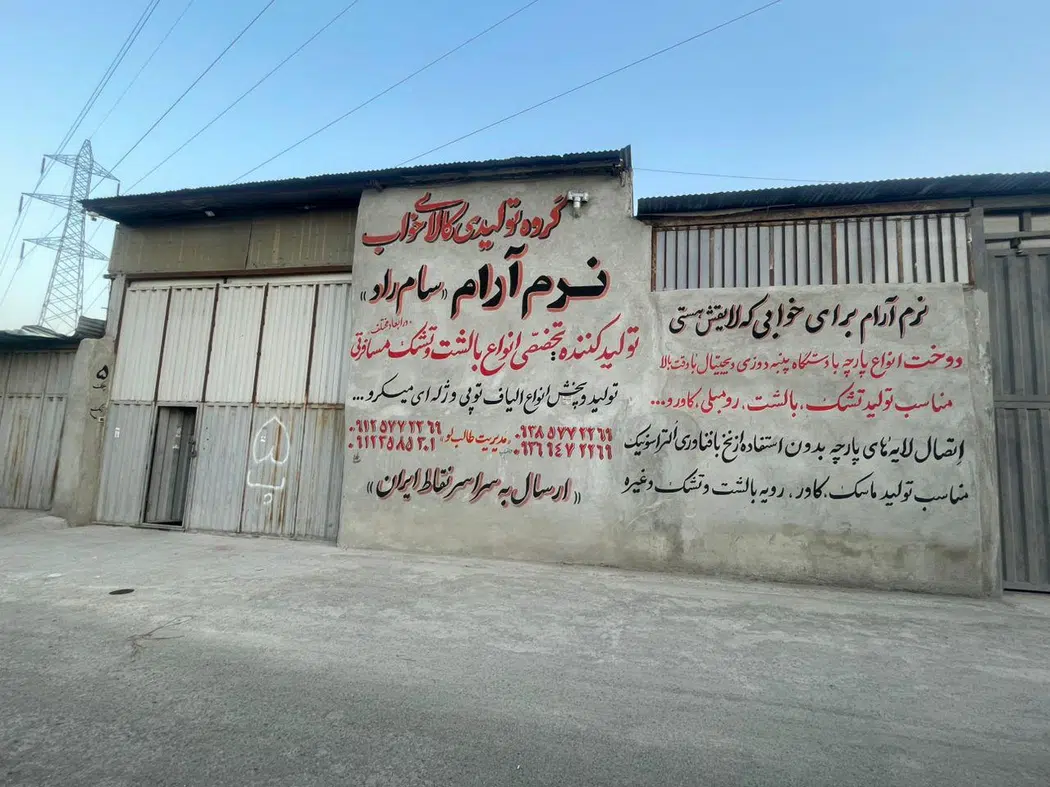 گروه تولیدی کالای خواب
نرم آرام «سام راد»
در ابعاد مختلف
تولید کننده تخصصی انواع بالشت و تشک مسافرتی
تولید و پخش انواع الیاف توپی و ژله ای میکرو...
۰۹۳۸ ۵۷۷ ۲۲۶۹ مدیریت طالب لو ۰۹۱۲ ۵۷۷ ۲۲۶۹
۰۹۳۶ ۹۴۷ ۲۲۶۹ ۰۹۱۲۳ ۵۸ ۵۳۰۱
«ارسال به سراسر نقاط ایران»
نرم آرام برای خوابی که لایقش هستی
دوخت انواع پارچه با دستگاه پنبه دوزی دیجیتال با دقت بالا
مناسب تولید تشک، بالشت، رومبلی، کاور و...
اتصال لایه های پارچه بدون استفاده از نخ با فناوری اُلتراسونیک
مناسب تولید ماسک، کاور، رویه بالشت و تشک و غیره
۵
پ ۵